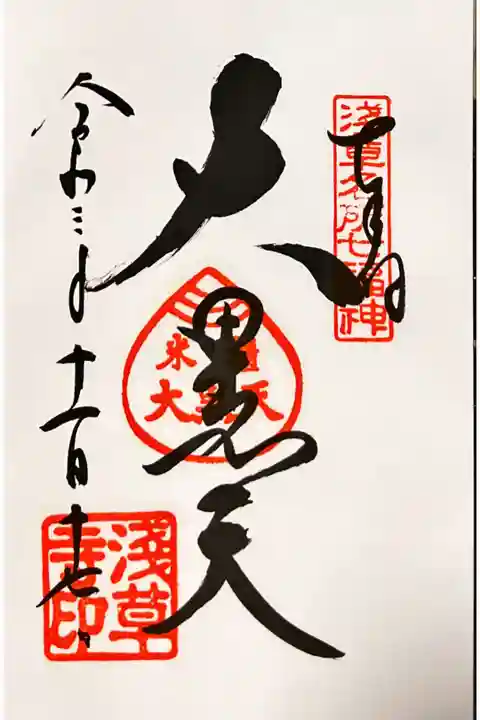 淺草名所七福神
奉拝
大黒天
米
大黒天
令和三年十一月十七日
淺草
寺印